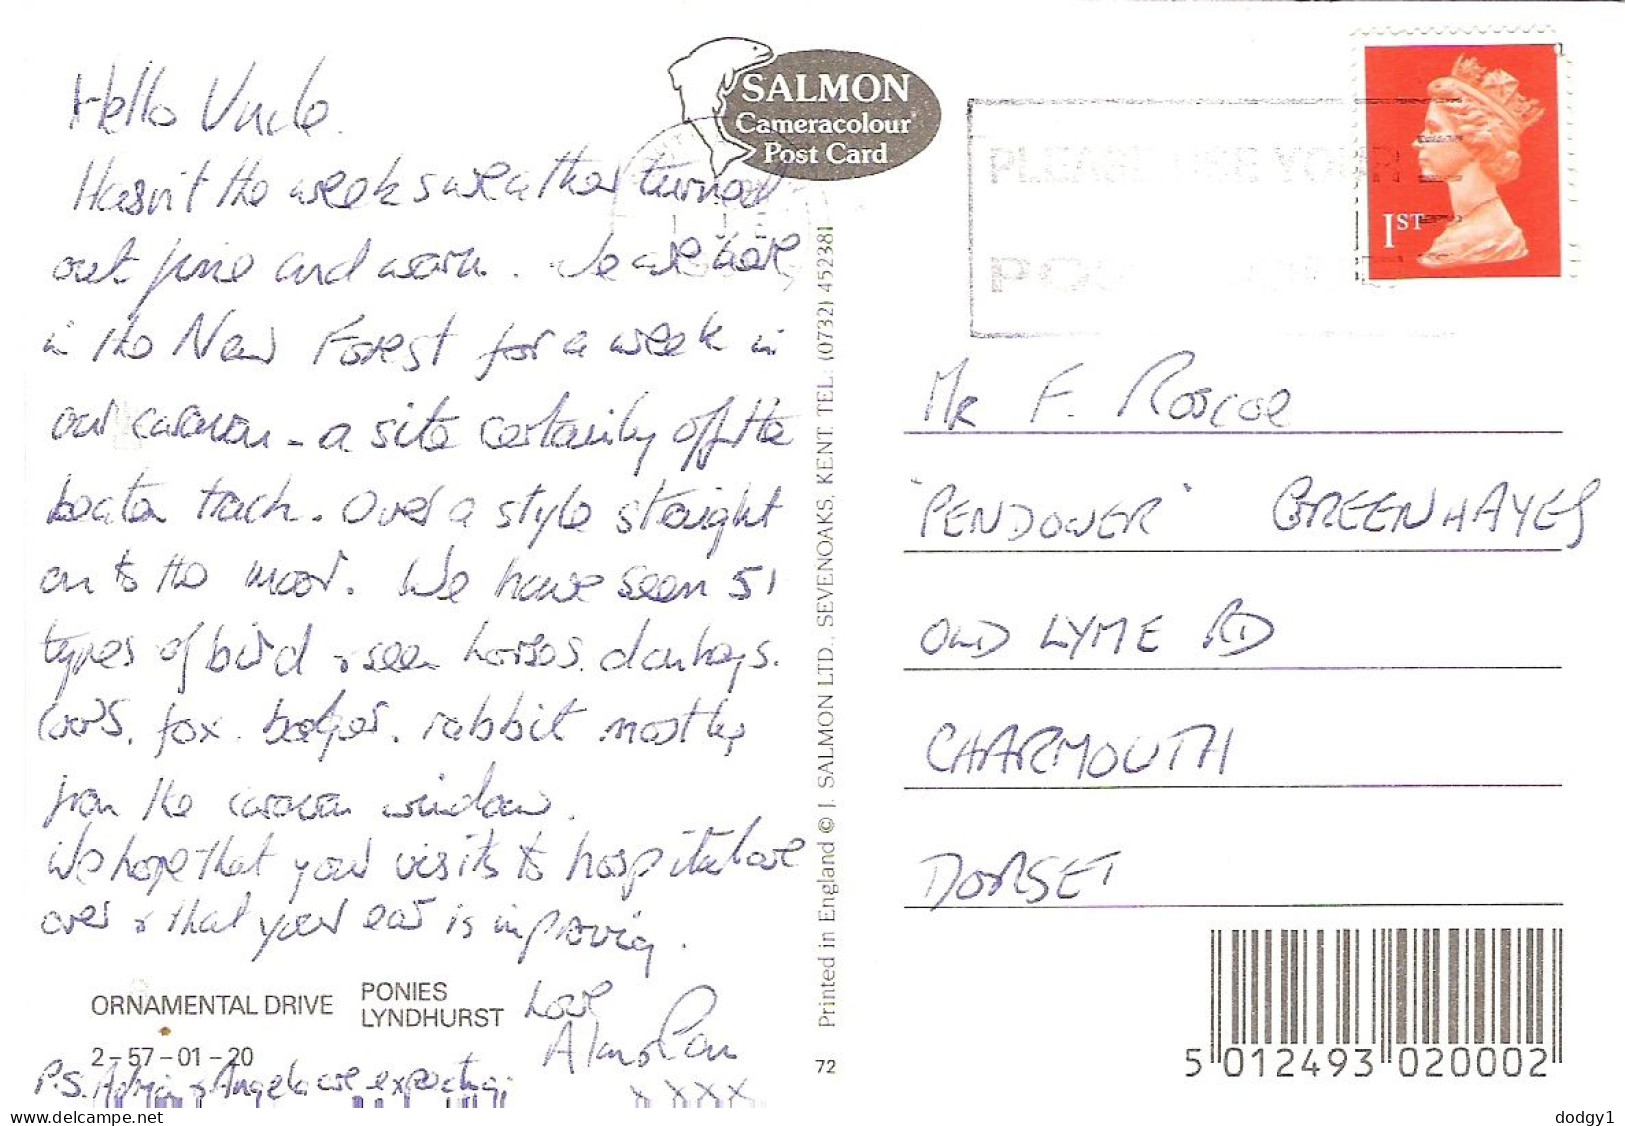 Hello Uncle.
Hasn't the weeks weather turned
out fine and warm. We are here
in the New Forest for a week in
our caravan - a site certainly off the
beaten track. Over a style straight
on to the moor. We have seen 51
types of bird & seen horses. donkeys.
cows. fox. badger. rabbit mostly
from the caravan window.
We hope that your visits to hospital are
over & that your ear is improving.
Love
Alan & Pam
xxxx
P.S. Adrian & Angela are expecting
ORNAMENTAL DRIVE
PONIES
LYNDHURST
2-57-01-20
SALMON
Cameracolour
Post Card
Printed in England © J. SALMON LTD., SEVENOAKS, KENT. TEL: (0732) 452381
72
PLEASE USE YOUR
1ST
Mr F. Roscoe
"PENDOWER" GREENHAYES
OLD LYME RD
CHARMOUTH
DORSET
5 012493 020002
dodgy1